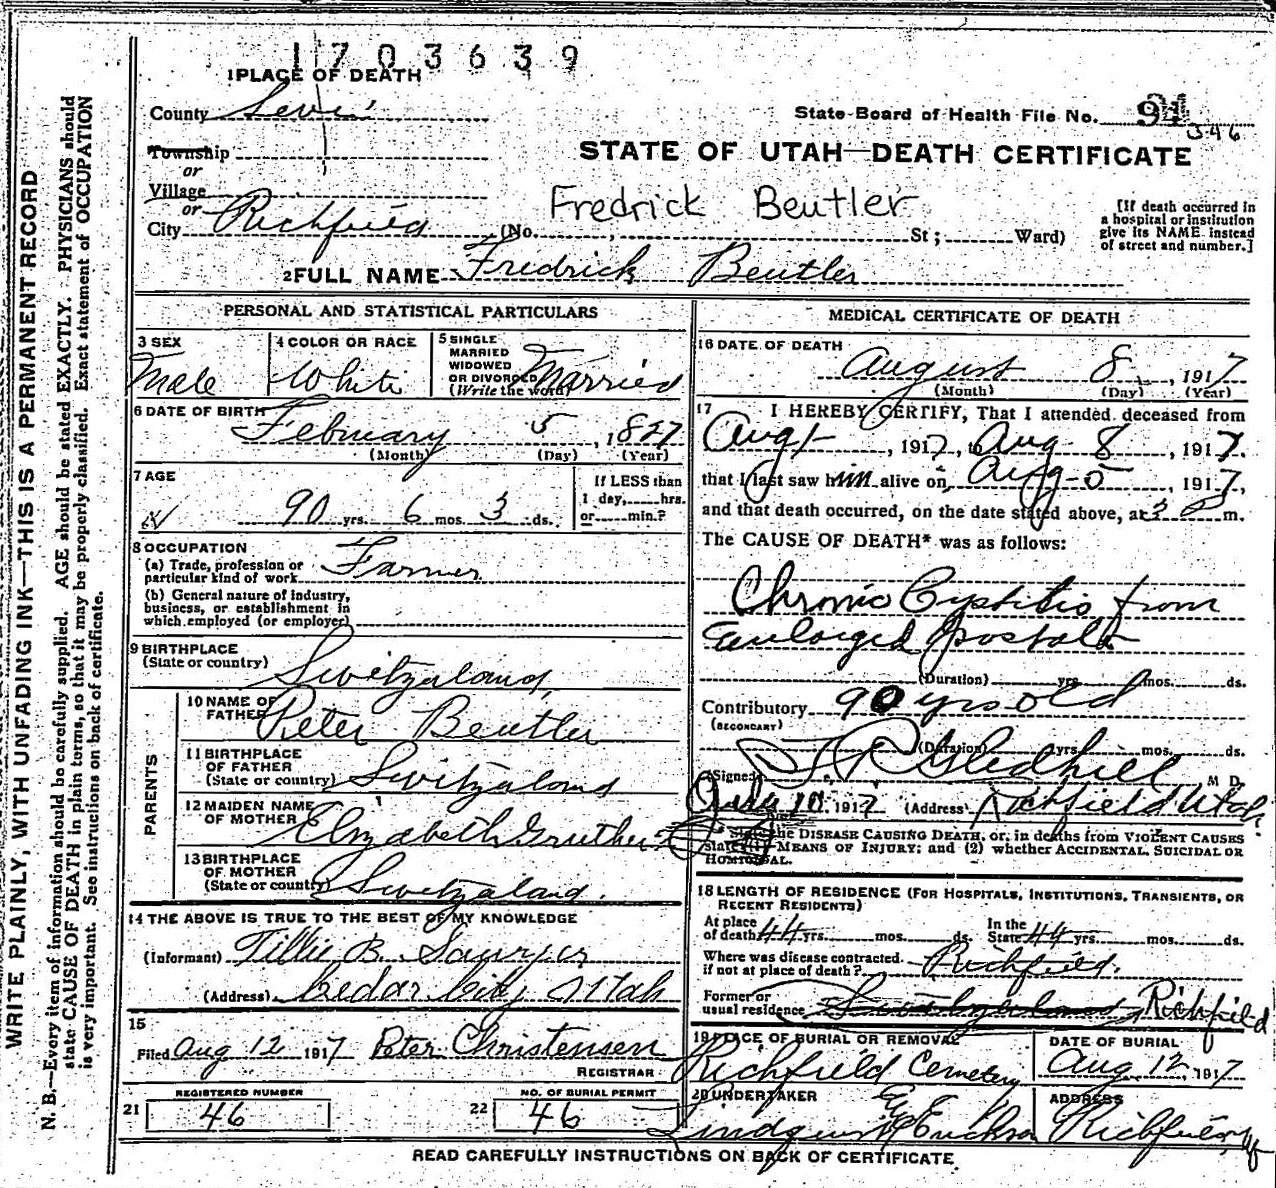 1703639
1 PLACE OF DEATH
County Sevier
State Board of Health File No. 94
346
Township
or
Village
or
City Richfield (No. , St; Ward)
STATE OF UTAH—DEATH CERTIFICATE
Fredrick Beutler
[If death occurred in
a hospital or institution
give its NAME instead
of street and number.]
2 FULL NAME Fredrick Beutler
PERSONAL AND STATISTICAL PARTICULARS
3 SEX
Male
4 COLOR OR RACE
White
5 SINGLE
MARRIED
WIDOWED
OR DIVORCED
(Write the word)
Married
6 DATE OF BIRTH
February 5, 1827
(Month) (Day) (Year)
7 AGE
90 yrs. 6 mos. 3 ds.
If LESS than
1 day, hrs.
or min.?
8 OCCUPATION
(a) Trade, profession or
particular kind of work Farmer
(b) General nature of industry,
business, or establishment in
which employed (or employer)
9 BIRTHPLACE
(State or country) Switzerland
PARENTS
10 NAME OF
FATHER Peter Beutler
11 BIRTHPLACE
OF FATHER
(State or country) Switzerland
12 MAIDEN NAME
OF MOTHER Elizabeth
13 BIRTHPLACE
OF MOTHER
(State or country) Switzerland
14 THE ABOVE IS TRUE TO THE BEST OF MY KNOWLEDGE
(Informant) Tillie B. Sawyer
(Address) Cedar City Utah
15
Filed Aug 12 1917 Peter Christensen
REGISTRAR
REGISTERED NUMBER
21 46
NO. OF BURIAL PERMIT
22 46
MEDICAL CERTIFICATE OF DEATH
16 DATE OF DEATH
August 8, 1917
(Month) (Day) (Year)
17 I HEREBY CERTIFY, That I attended deceased from
Aug 1, 1917, to Aug 8, 1917.
that I last saw him alive on Aug 5, 1917,
and that death occurred, on the date stated above, at 3 P m.
The CAUSE OF DEATH* was as follows:
Chronic Cystitis from
Enlarged
(Duration) yrs. mos. ds.
Contributory 90 yrs old
(SECONDARY)
(Duration) yrs. mos. ds.
(Signed) Gledhill M D.
10 1917 (Address) Richfield Utah.
State the DISEASE CAUSING DEATH, or, in deaths from VIOLENT CAUSES
state (1) MEANS OF INJURY; and (2) whether ACCIDENTAL, SUICIDAL OR
HOMICIDAL.
18 LENGTH OF RESIDENCE (FOR HOSPITALS, INSTITUTIONS, TRANSIENTS, OR
RECENT RESIDENTS)
At place
of death 44 yrs. mos. ds.
In the
State 44 yrs. mos. ds.
Where was disease contracted
if not at place of death? Richfield.
Former or
usual residence Switzerland Richfield
19 PLACE OF BURIAL OR REMOVAL
Richfield Cemetery
DATE OF BURIAL
Aug 12, 1917
20 UNDERTAKER
ADDRESS
READ CAREFULLY INSTRUCTIONS ON BACK OF CERTIFICATE.
WRITE PLAINLY, WITH UNFADING INK—THIS IS A PERMANENT RECORD
N. B.—Every item of information should be carefully supplied. AGE should be stated EXACTLY. PHYSICIANS should
state CAUSE OF DEATH in plain terms, so that it may be properly classified. Exact statement of OCCUPATION
is very important. See instructions on back of certificate.